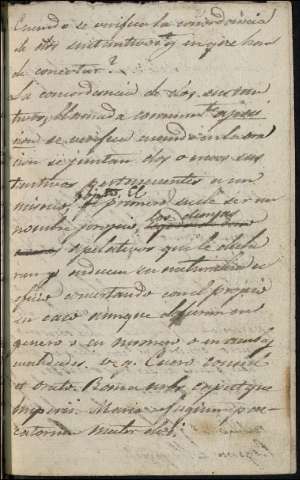 Cuando se verifica la concordancia
de dos sustantivos y en que han
de concertar?
La concordancia de dos sustan
tivos, llamada comunmente aposi
cion se verifica cuando en la ora
cion se juntan dos o mas sus
tantivos pertenecientes a un
mismo, el primero suele ser un
nombre propio, los demas
apelativos que le decla
ran y indican su naturaleza u
oficio concertando con el propio
en caso aunque difieran en
genero o en numero o en ambas
cualidades. v. g. Cicero consul
et orator. Roma urbs caput que
Imperii. Maria refugium pec
catorum mater Dei.